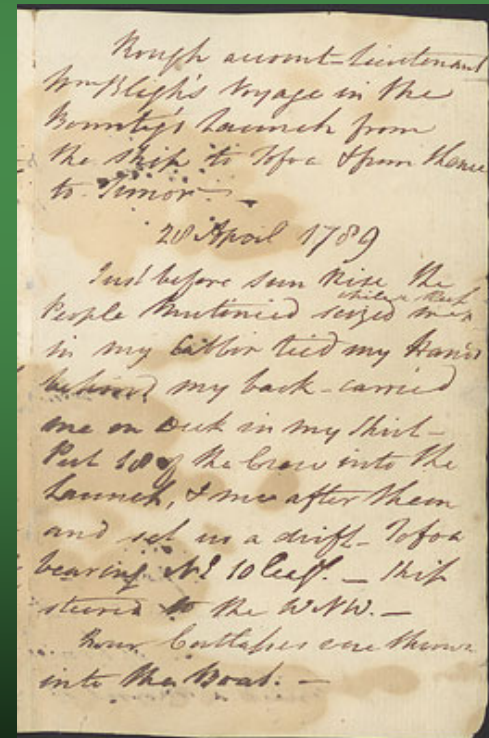 Rough account - Lieutenant
Wm Bligh's Voyage in the
Bounty's Launch from
the Ship to Tofoa & from thence
to Timor -
28 April 1789
Just before Sun rise the
while a Sleep
People Mutinied seized me
in my Cabbin tied my Hands
behind my back - carried
me on Deck in my Shirt -
Put 18 of the Crew into the
Launch, & me after them
and set us a drift - Tofoa
bearing NE 10 Leags. - Ship
steered to the WNW. -
Four Cutlasses were thrown
into the Boat. -